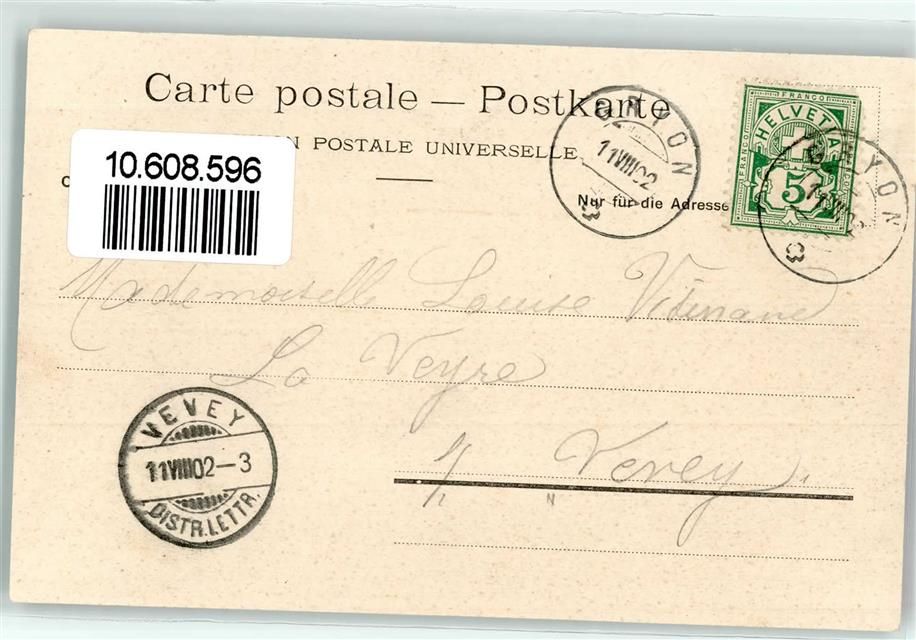 Carte postale — Postkarte
N POSTALE UNIVERSELLE
10.608.596
Nur für die Adresse
GRYON
11 VIII 02
FRANCO
HELVETIA
FRANCO
FRANCO
5
GRYON
11 VIII 02
Mademoiselle Louise
La Veyre
s/ Vevey
VEVEY
11 VIII 02 – 3
DISTR. LETTR.